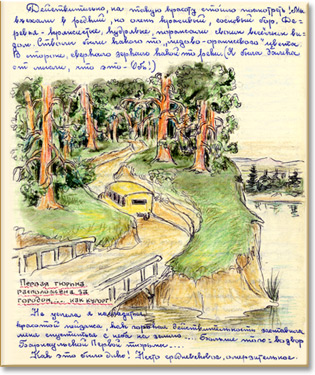 Действительно, на такую красоту стоило посмотреть! Мы
въехали в редкий, но очень красивый, сосновый бор. Де-
ревья - кряжистые, кудрявые, поражали своим весёлым ви-
дом. Стволы были какого-то, "медово-оранжевого" цвета.
В стороне, сверкало зеркало какой-то реки. (Я была далека
от мысли, что это - Обь!)
Первая тюрьма
расположена за
городом... как курорт!
Не успела я насладиться
красотой пейзажа, как горькая действительность заставила
меня спуститься с неба на землю...
Барнаульской Первой тюрьмы...
Как это было дико! Нечто средневековое, омерзительное.